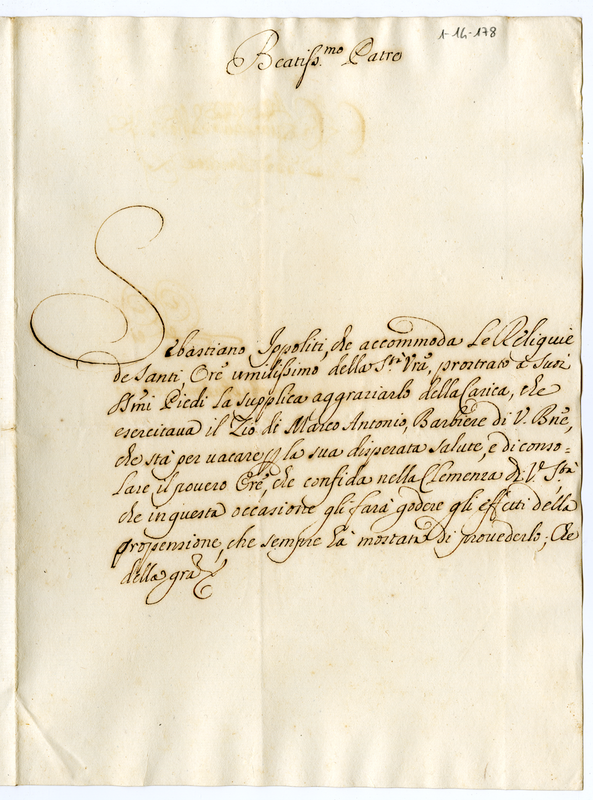 1-14-178
Beatiss.mo Padre
Sebastiano Ippoliti, che accommoda Le Reliquie
de Santi, Ore umilissimo della Stà Vrà, prostrato a suoi
SSmi Piedi La supplica aggraziarlo della Carica, che
esercitava il Zio di Marco Antonio, Barbiere di V. Bne,
che stà per vacare p la sua disperata salute, e di conso=
lare il povero Ore, che confida nella Clemenza di V.a S.tà
che in questa occasione gli farà godere gli effetti della
propensione, che sempre hà mostrata di provederlo; Che
della grà